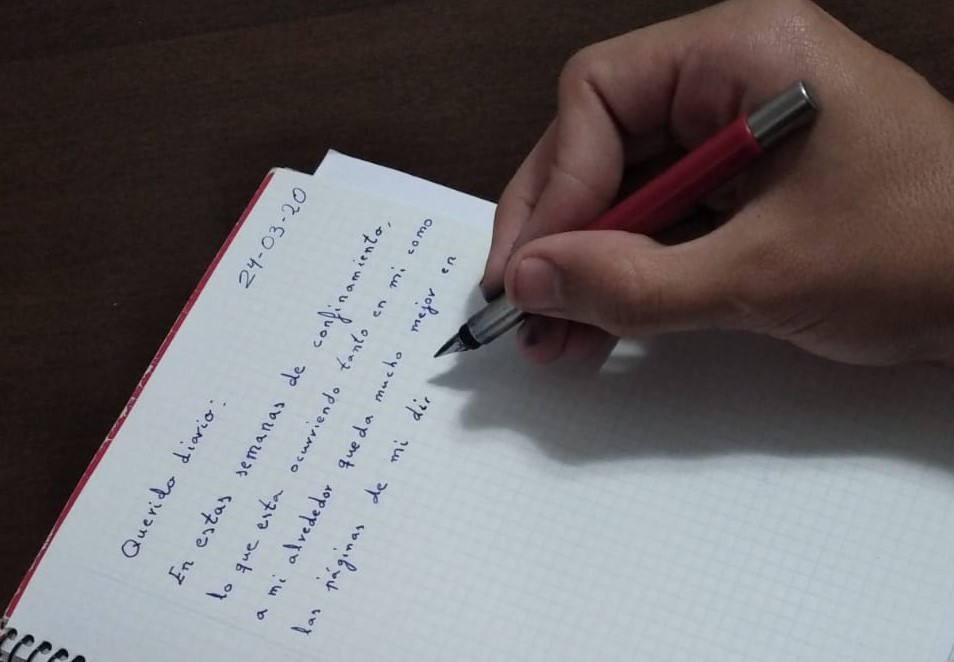 24-03-20
Querido diario:
En estas semanas de confinamiento,
lo que esta ocurriendo tanto en mi como
a mi alrededor queda mucho mejor en
las páginas de mi dir